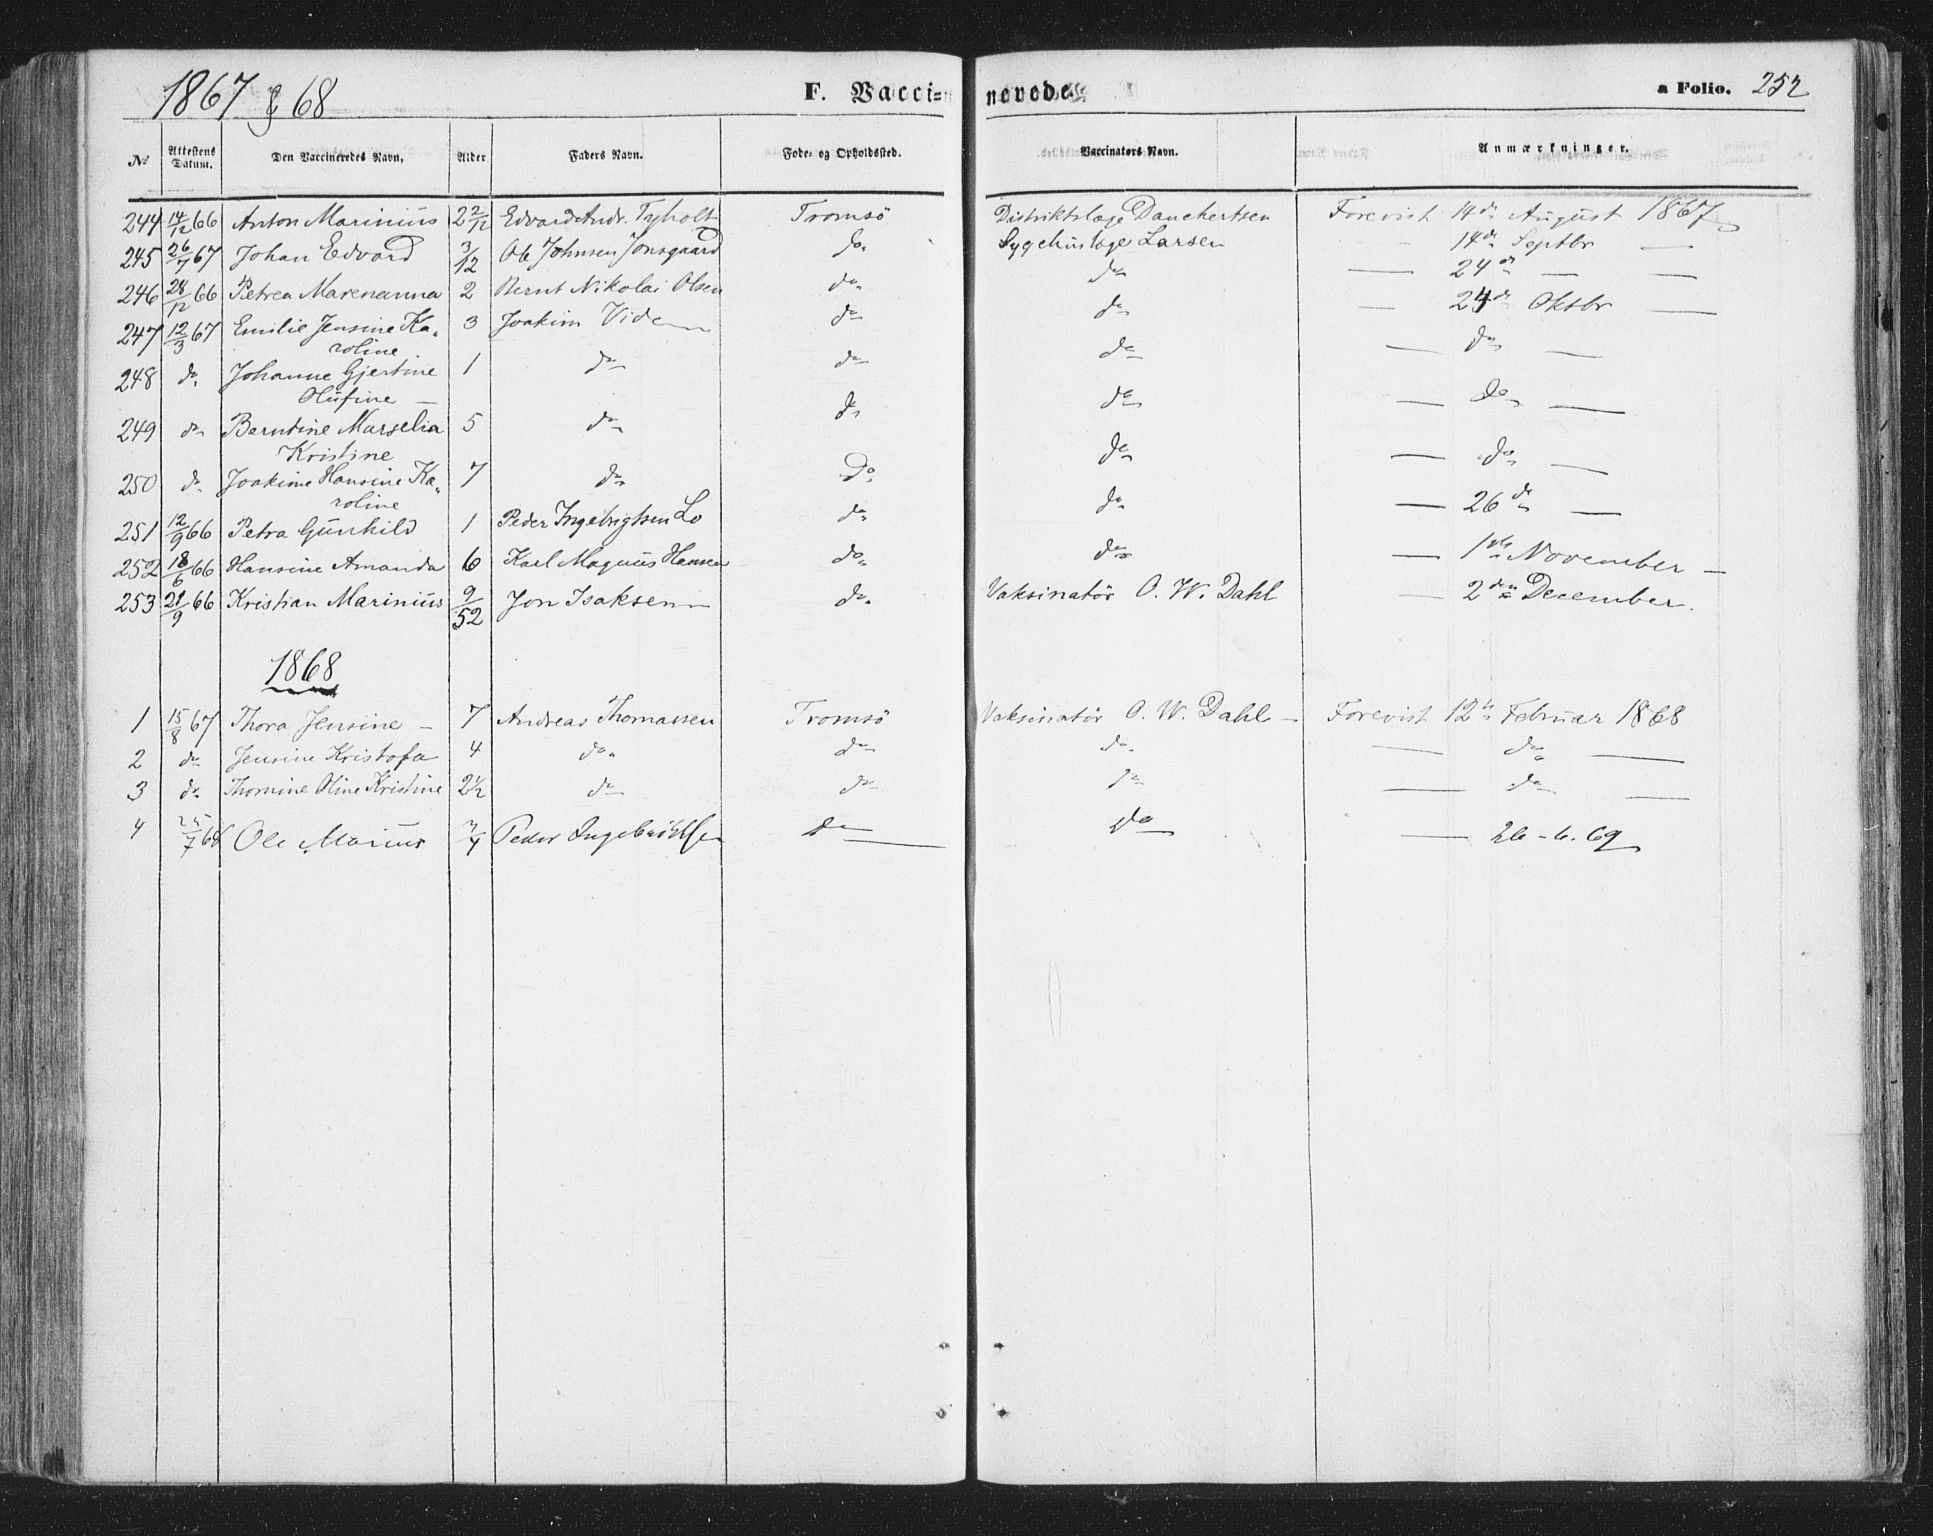 1867 & 68 F. Vacci= nerede a Folio. 252
No Attestens Datum. Den Vaccineredes Navn, Alder Faders Navn. Føde- og Opholdssted. Vaccinators Navn. Anmærkninger.
244 14/12 66 Anton Marinius 2 2/12 Edvard Andr. Tyholt Tromsö Distriktslæge Danchertsen Forevist 14de August 1867
245 26/7 67 Johan Edvard 3/12 Ole Johnsen Jonsgaard do. Sygehuslæge Larsen 14de Septbr —
246 28/12 66 Petrea Marenanna 2 Bernt Nikolai Olsen do. do — 24de — —
247 12/3 67 Emilie Jensine Ka- 3 Joakim Viden do do — 24de Oktbr —
roline
248 do. Johanne Gjertine 1 do do do — do —
Olufine —
249 do Berntine Marselia 5 do do do — do —
Kristine
250 do Joakime Hansine Ka- 7 do Do. do — do —
roline
251 12/9 66 Petra Gunhild 1 Peder Ingebrigtsen Lo do do — 26de —
252 18/6 66 Hansine Amanda 6 Karl Magnus Hansen do. do — 1ste November —
253 21/9 66 Kristian Marinius 9/52 Jon Isaksen do. Vaksinatör O. W. Dahl — 2den December.
1868
1 15/8 67 Thora Jensine — 7 Andreas Thomassen Tromsö Vaksinatör O. W. Dahl — Forevist 12te Februar 1868
2 do Jensine Kristofa 4 do. do do. — do —
3 do. Thomine Oline Kristine 2½ do do do — do —
4 25/7 68 Ole Marius 3/4 Peder Ingebrigtsen Do — Do — 26-6.69